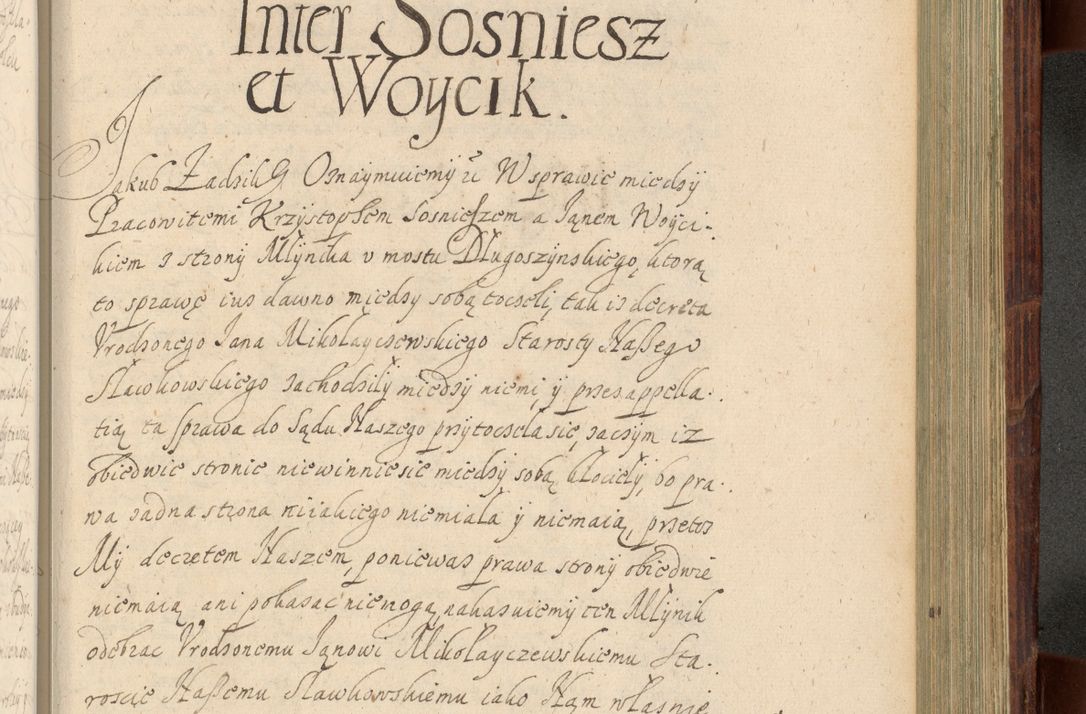 Inter Sosniesz
et Woycik.
Jakub Zadzik Oznaymuiemy iż W sprawie miedzy
Pracowitemi Krzystophem Sosnieszem a Janem Woyci-
kiem z strony Młynika v mostu Długoszynskiego, ktorą
to sprawę iuz dawno między sobą toczeli, tak iz decreta
Vrodzonego Jana Mikolayczewskiego Starosty Naszego
Slawkowskiego zachodziły miedzy niemi, y przez appella-
tią ta sprawa do Sądu Naszego przytoczela się, zaczym iz
obiedwie stronie niewinniesie miedzy sobą kłocieły, bo pra-
wa zadna strona niiakiego niemiała y niemaią, przetoz
My decretem Naszem, poniewaz prawa strony obiedwie
niemaią ani pokazac niemogą, nakazuiemy ten Młynik
odebrac Vrodzonemu Janowi Mikolayczewskiemu Sta-
roscie Naszemu Slawkowskiemu iako Nam własnie